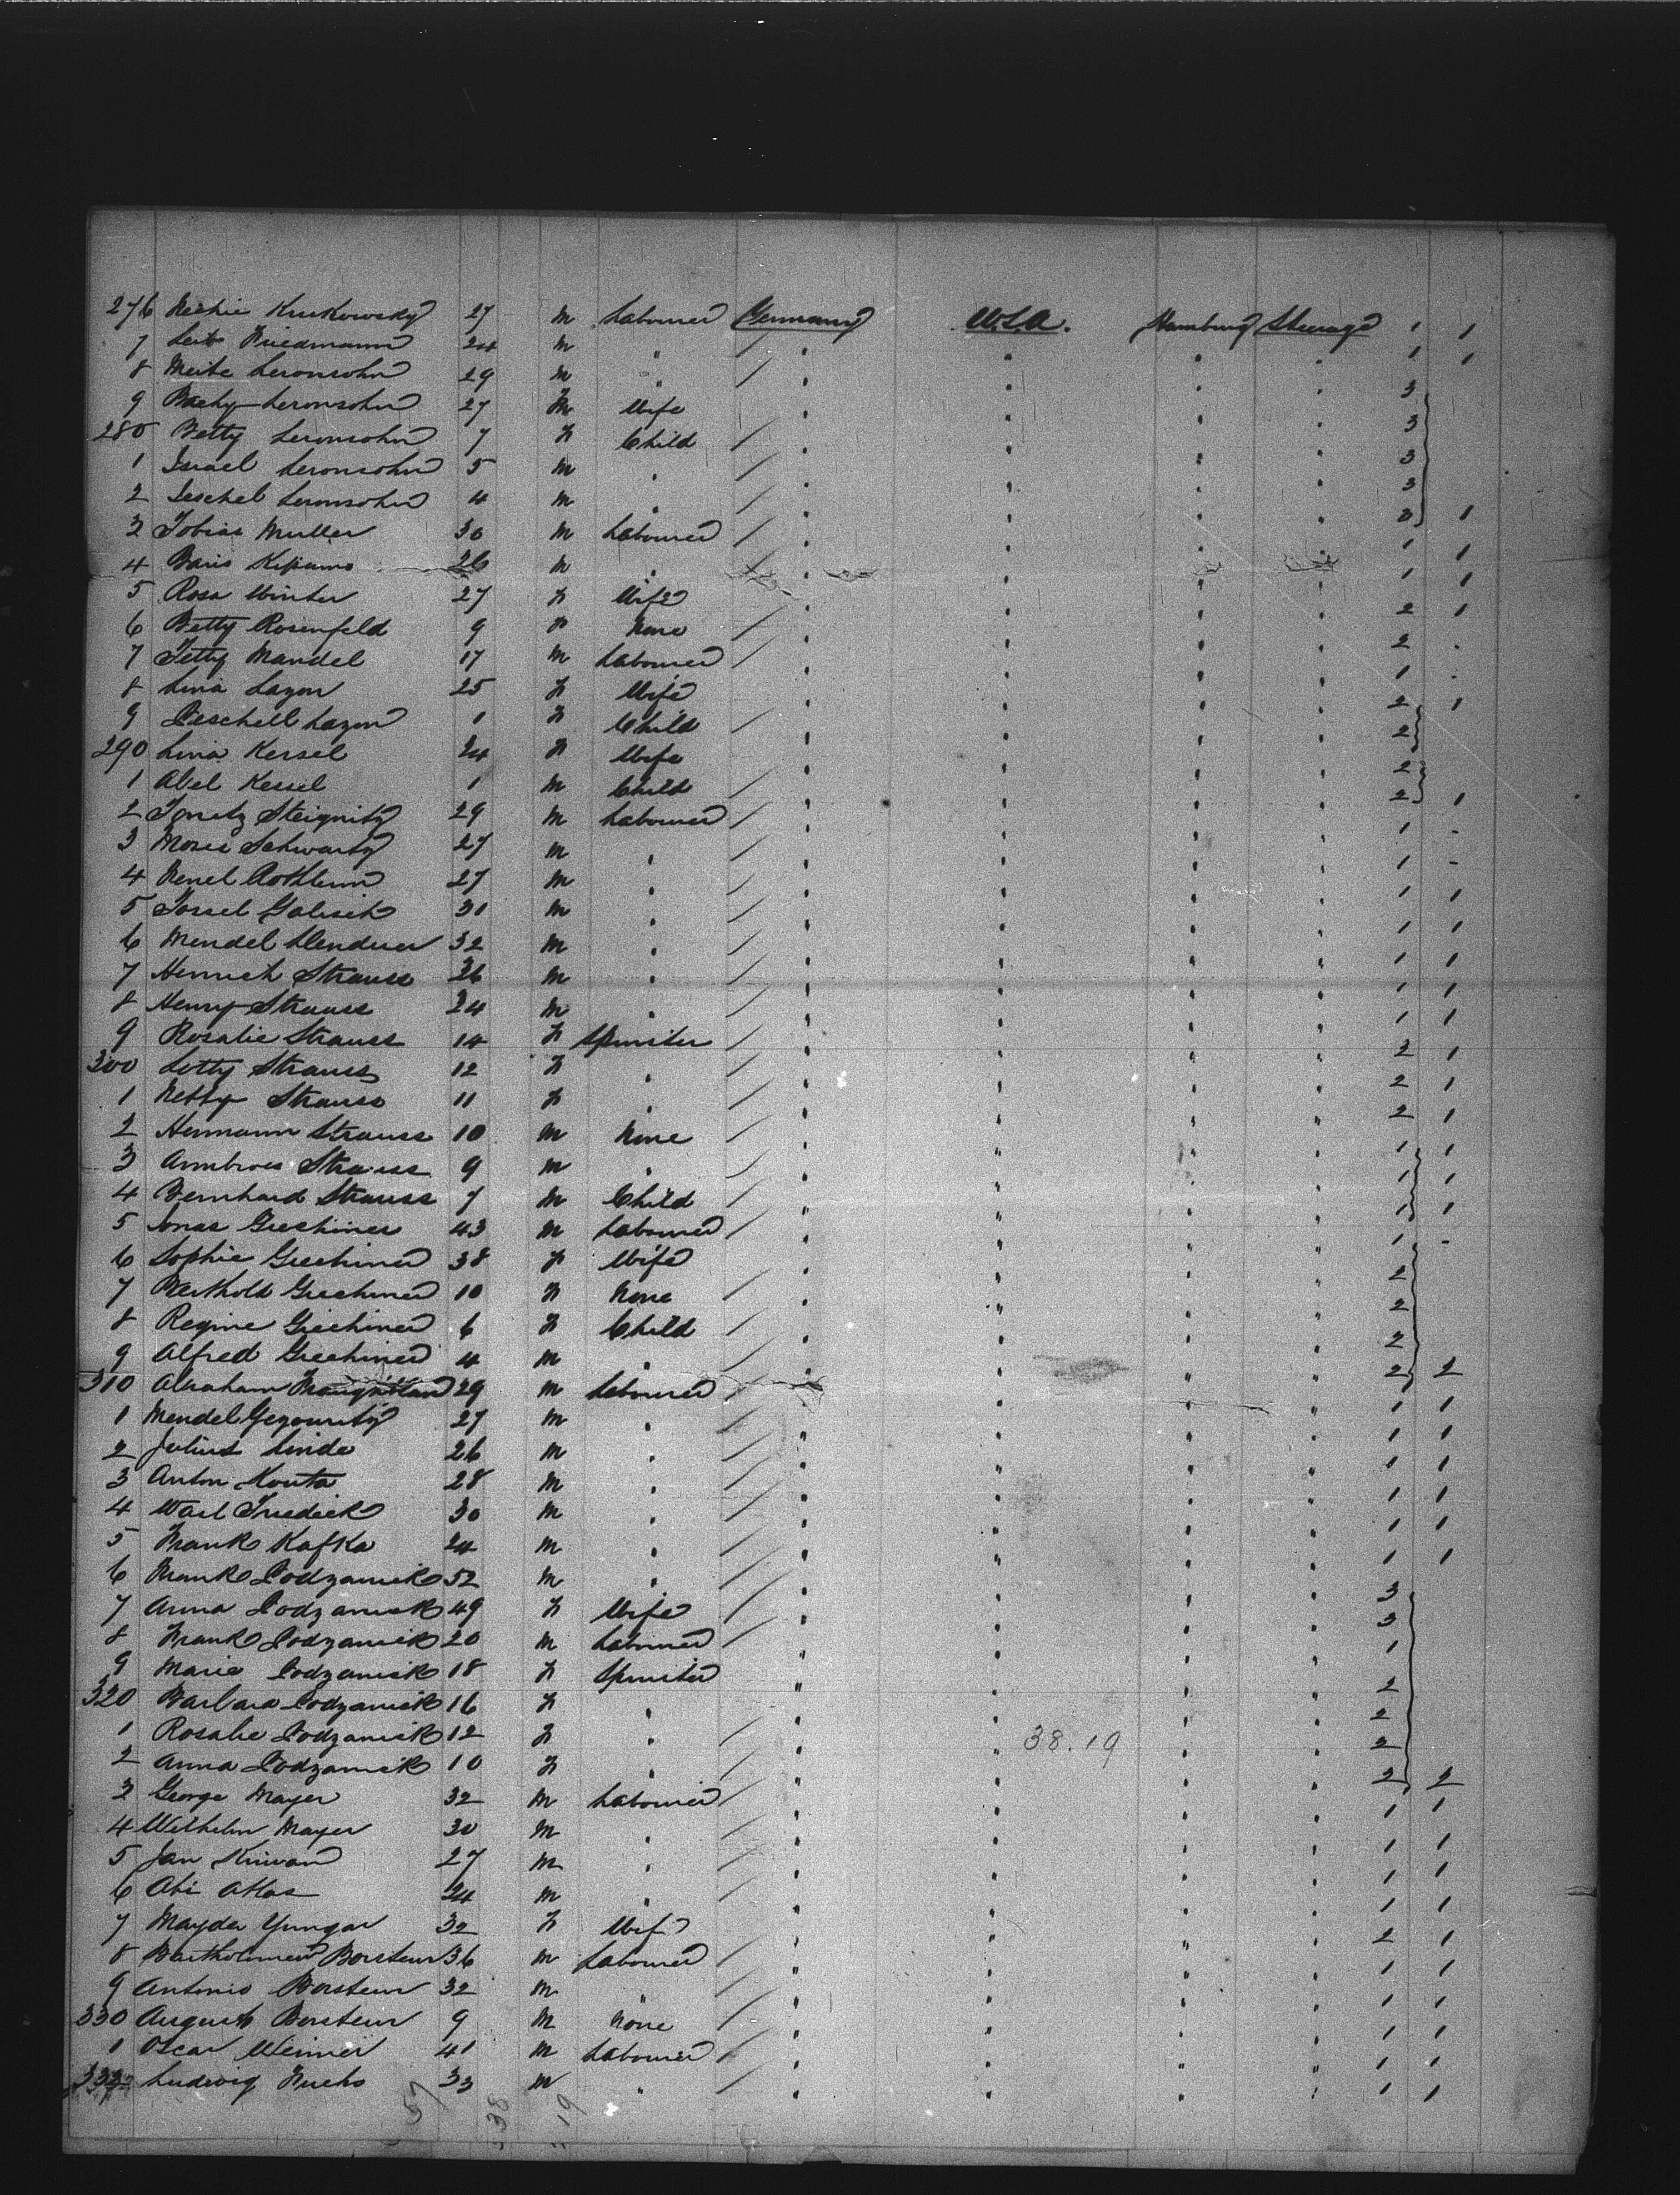 276 Nechie Krukowsky 27 m Labourer Germany U.S.A. Hamburg Steerage 1 1
7 Leib Friedmann 24 m " / " " " " 1 1
8 Meite Leronsohn 29 m " / " " " " 3
9 Leronsohn 27 Wife " " " " 3
280 Betty Leronsohn 7 F Child / " " " " 3
1 Israel Leronsohn 5 m " / " " " " 3
2 Leronsohn 4 m " / " " " " 3 1
3 Tobias Muller 30 m Labourer / " " " " 1 1
4 26 m " " " " " 1 1
5 Rosa Winter 27 F Wife " " " " 2 1
6 Betty Rosenfeld 9 F None / " " " " 2
7 Mandel 17 m Labourer / " " " " 1
8 Lina Lazon 25 F Wife " " " " 2 1
9 Lazon 1 F Child / " " " " 2
290 Lina Kessel 24 F Wife " " " " 2
1 Abel Kessel 1 m Child / " " " " 2 1
2 Steignitz 29 m Labourer / " " " " 1 -
3 Moses Schwartz 27 m " / " " " " 1 -
4 27 m " / " " " " 1 1
5 31 m " / " " " " 1 1
6 Mendel 32 m " / " " " " 1 1
7 Strauss 26 m " / " " " " 1 1
8 Henry Strauss 24 m " / " " " " 1 1
9 Rosalie Strauss 14 F Spinster / " " " " 2 1
300 Lotty Strauss 12 F " / " " " " 2 1
1 Netty Strauss 11 F " / " " " " 2 1
2 Hermann Strauss 10 m None / " " " " 1 1
3 Strauss 9 m " / " " " " 1 1
4 Bernhard Strauss 7 m Child / " " " " 1 1
5 Jonas Greshiner 43 m Labourer / " " " " 1 -
6 Sophie Greshiner 38 F Wife " " " " 2
7 Berthold Greshiner 10 F None / " " " " 2
8 Regine Greshiner 6 F Child / " " " " 2
9 Alfred Greshiner 4 m " / " " " " 2 2
310 Abraham 29 m Labourer / " " " " 1 1
1 Mendel 27 m " / " " " " 1 1
2 Julius Linde 26 m " / " " " " 1 1
3 Anton Kouta 28 m " / " " " " 1 1
4 30 m " / " " " " 1 1
5 Frank Kafka 24 m " / " " " " 1 1
6 Frank Lodzamick 52 m " / " " " " 3
7 Anna Lodzamick 49 F Wife / " " " " 3
8 Frank Lodzamick 20 m Labourer / " " " " 1
9 Marie Lodzamick 18 F Spinster " " " " 2
320 Barbara Lodzamick 16 F " " " " " 2
1 Rosalie Lodzamick 12 F " / " " 38.19 " " 2
2 Anna Lodzamick 10 F " / " " " " 2 2
3 George Mayer 32 m Labourer / " " " " 1 1
4 Wilhelm Mayer 30 m " / " " " " 1 1
5 Jan 27 m " / " " " " 1 1
6 Abi Atlas 24 m " / " " " " 1 1
7 Yungar 32 F Wife " " " " 2 1
8 Bartholomew Borsteur 36 m Labourer / " " " " 1 1
9 Antonio Borsteur 32 m " / " " " " 1 1
330 August Borsteur 9 m None / " " " " 1 1
1 Oscar Weimer 41 m Labourer / " " " " 1 1
332 Ludwig Fuchs 33 m " / " " " " 1 1
57 38 19